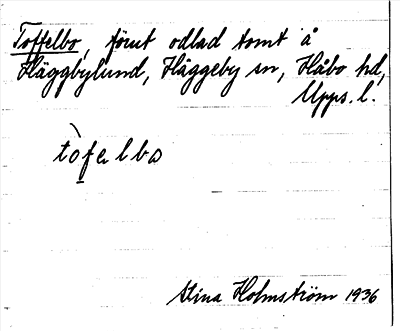 Toffelbo, förut odlad tomt å
Häggbylund, Häggeby sn, Håbo hd,
Upps. l.
tòfelbo
Stina Holmström 1936